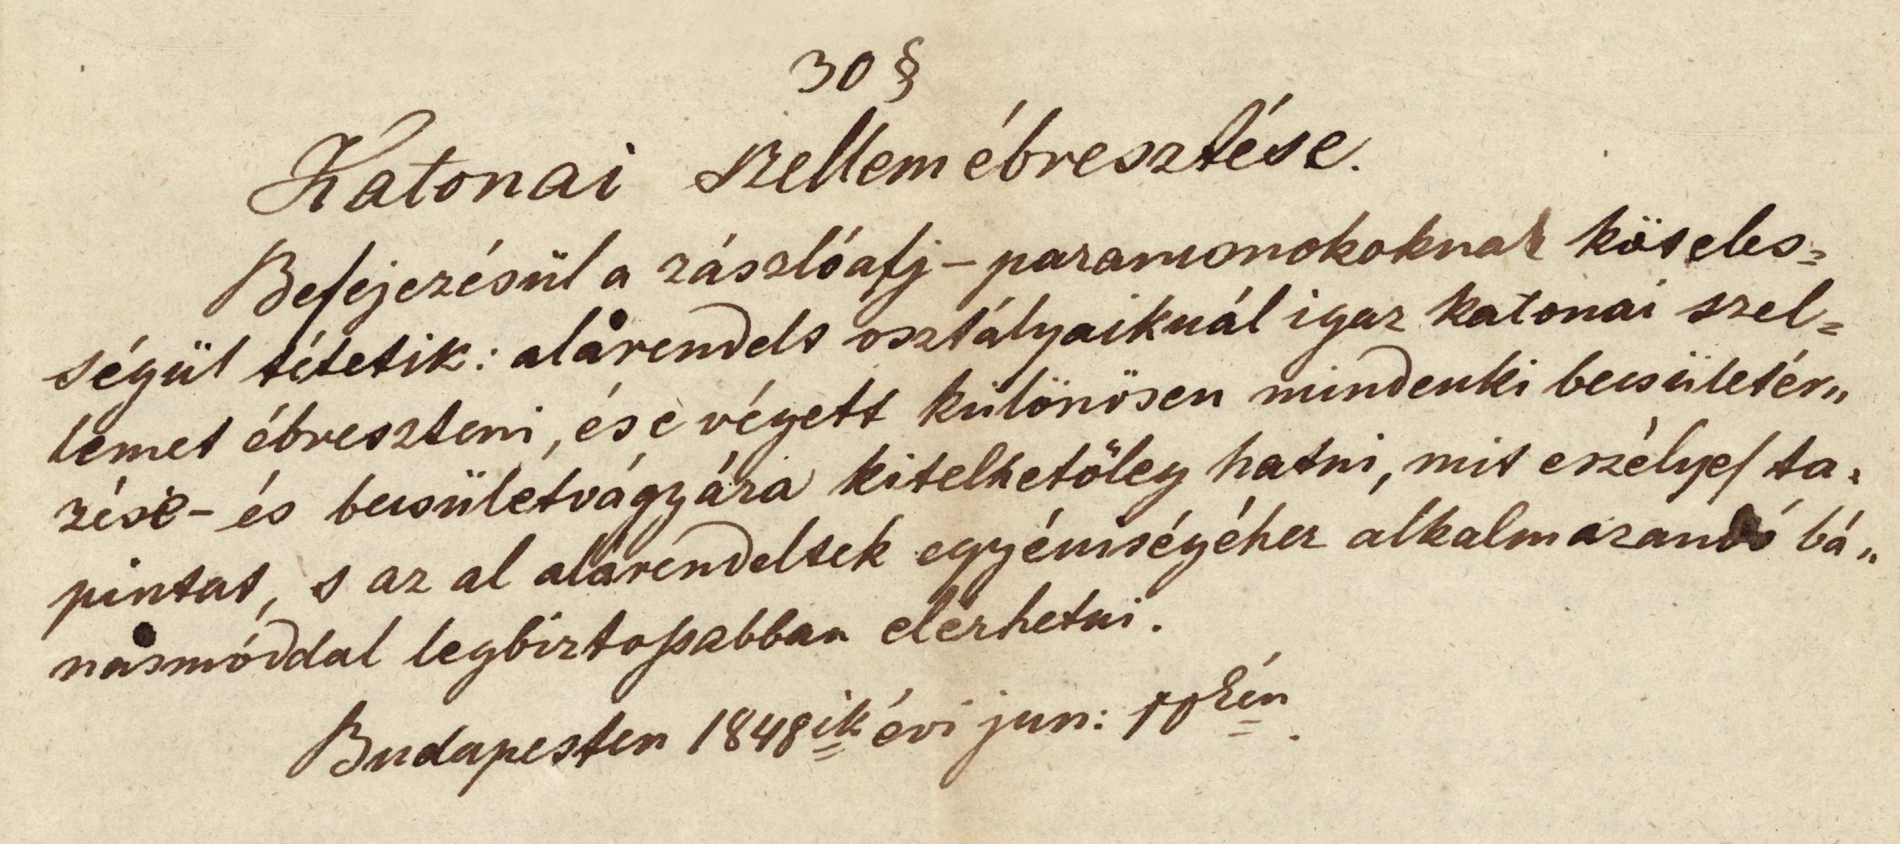 30 §
Katonai szellem ébresztése.
Befejezésül a zászlóalj-parancsnokoknak köteles=
ségül tétetik: alárendelt osztályaiknál igaz katonai szel=
lemet ébreszteni, és e végett különösen mindenki becsületér„
zése- és becsületvágyára kitelhetőleg hatni, mit eszélyes ta„
pintat, s az al alárendeltek egyéniségéhez alkalmazandó bá„
násmóddal legbiztossabban elérhetni.
Budapesten 1848ik évi jun: kén.